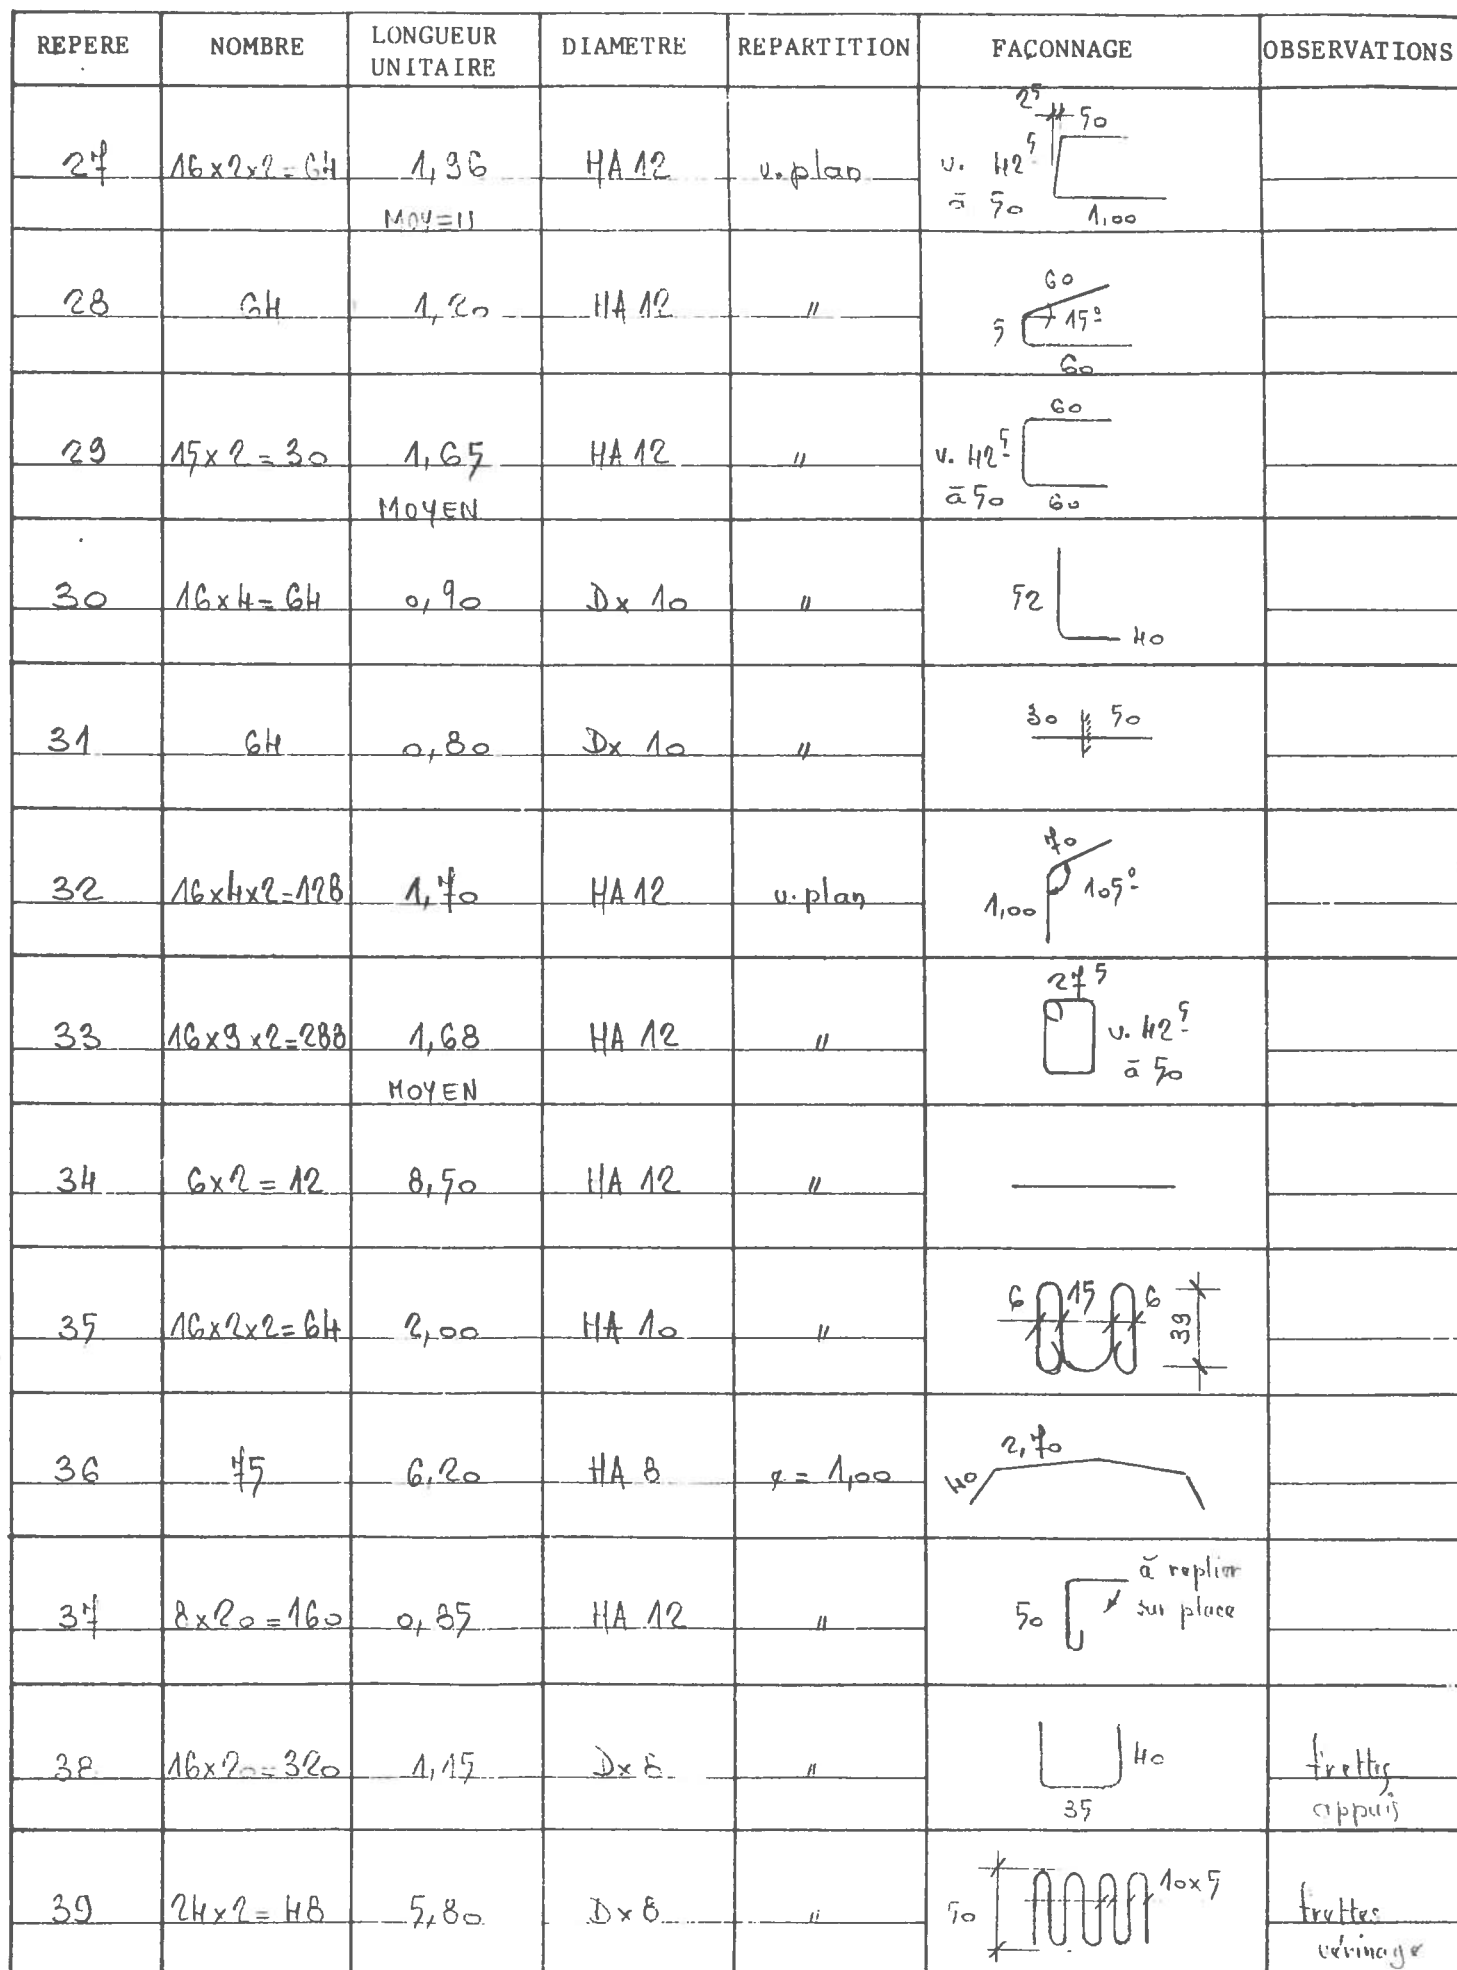 REPERE NOMBRE LONGUEUR UNITAIRE DIAMETRE REPARTITION FAÇONNAGE OBSERVATIONS
27 16x2x2=64 1,96 HA 12 v. plan 2⁵ 50 v. 42⁵
MOY=U à 50 1,00
28 64 1,20 HA 12 " 60
5 15°
60
29 15x2=30 1,65 HA 12 " 60
v. 42⁵
MOYEN à 50 60
30 16x4=64 0,90 Dx 10 " 52
40
31 64 0,80 Dx 10 " 30 50
32 16x4x2=128 1,70 HA 12 v. plan 70
1,00 105°
33 16x9x2=288 1,68 HA 12 " 27⁵
v. 42⁵
MOYEN à 50
34 6x2=12 8,50 HA 12 "
35 16x2x2=64 2,00 HA 10 " 6 15 6 39
36 75 6,20 HA 8 e = 1,00 2,70
40
37 8x20=160 0,85 HA 12 " à replier
50 sur place
38 16x20=320 1,15 Dx 8 " 40 frettes
35 appuis
39 24x2=48 5,80 Dx 8 " 50 10x5 frettes
vérinage